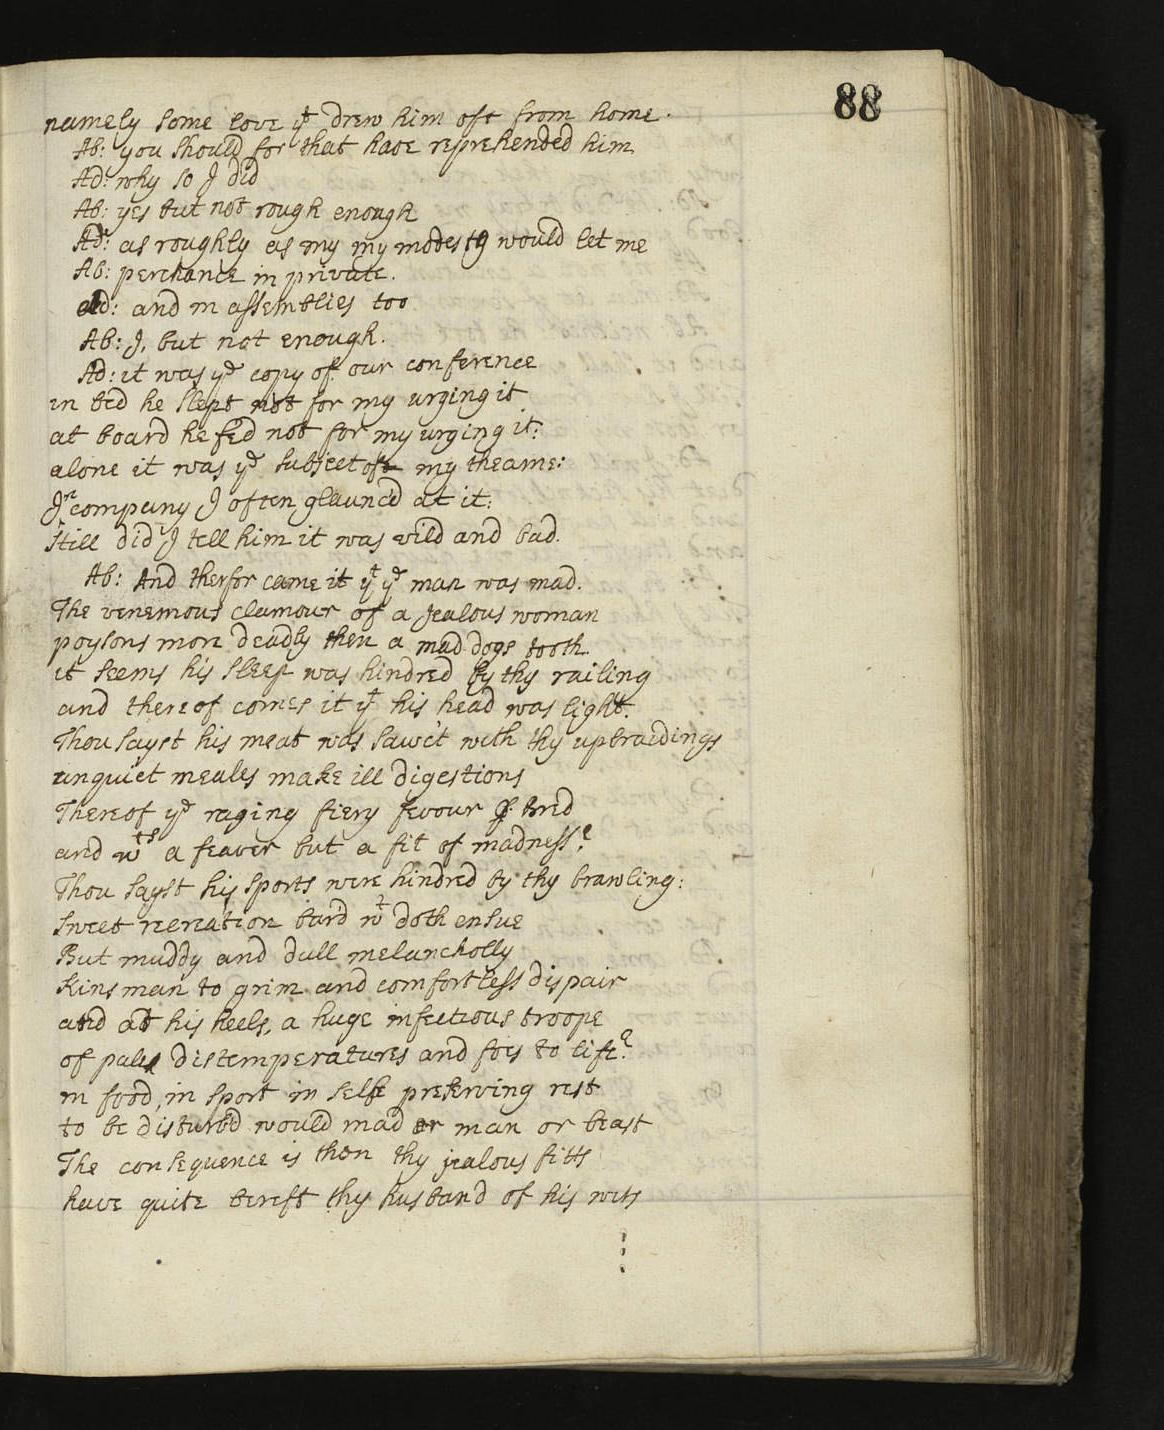 88
namely some love yt drew him oft from home.
Ab: you should for that have reprehended him
Ad: why so I did
Ab: yes but not rough enough
Ad: as roughly as my my modesty would let me
Ab: perchance in private.
Ad: and in assemblies too
Ab: I, but not enough.
Ad: it was ye copy of our conference
in bed he slept not for my urging it
at board he fed not for my urging it:
alone it was ye subject of my theame:
In company I often glaunc'd at it:
still did I tell him it was vild and bad.
Ab: And therfor came it yt ye man was mad.
The venemous clamour of a jealous woman
poysons more deadly then a mad dogs tooth
it seems his sleep was hindred by thy railing
and thereof comes it yt his head was light.
Thou sayst his meat was sawc't with thy upbraidings
unquiet meales make ill digestions
Thereof ye raging fiery fevour bred
and wts a feaver but a fit of madness?
Thou sayst his sports were hindred by thy brawling:
sweet recreation bar'd wt doth ensue
But muddy and dull melancholly
Kinsman to grim and comfortless dispair
and at his heels, a huge infectious troope
of pale distemperatures and foes to life?
in food, in sport in self preserving rest
to be disturbd would mad or man or beast
The consequence is then thy jealous fitts
have quite bereft thy husband of his wits